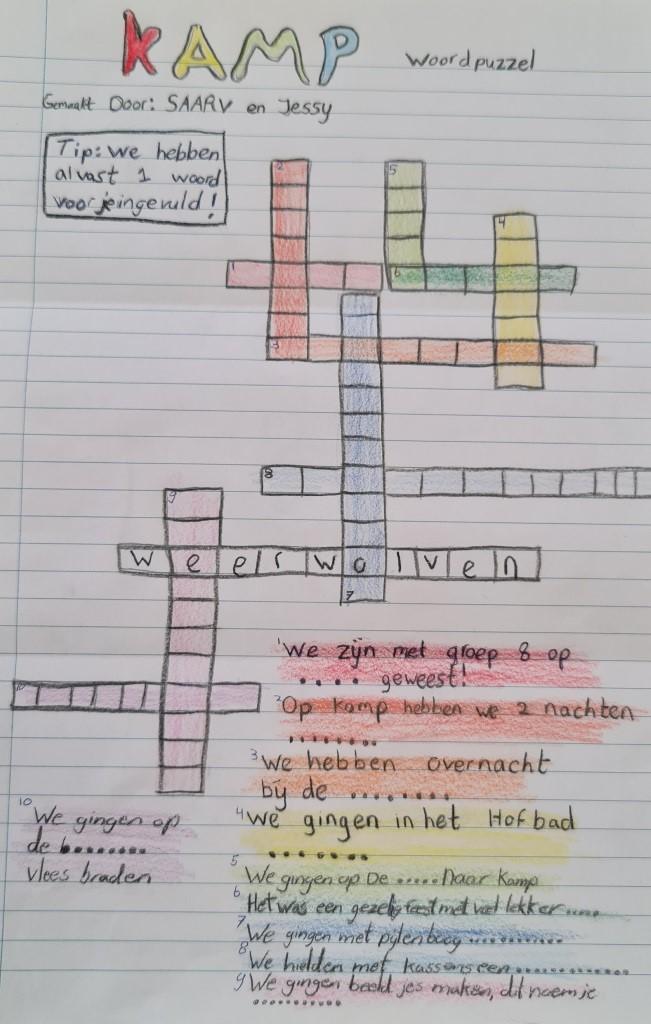 KAMP Woordpuzzel
Gemaakt Door: SAARV en Jessy
Tip: we hebben
alvast 1 woord
voor je ingevuld!
2
5
4
1
6
3
8
9
weerwolven
7
10
1 We zijn met groep 8 op
.... geweest!
2 Op kamp hebben we 2 nachten
........
3 We hebben overnacht
bij de ........
4 We gingen in het Hofbad
.......
10 We gingen op
de b.......
vlees braden
5 We gingen op De ..... Naar Kamp
6 Het was een gezellig feest met veel lekker .....
7 We gingen met pijlenboog ..........
8 We hielden met kassens een ............
9 We gingen beeldjes maken, dit noem je
..........